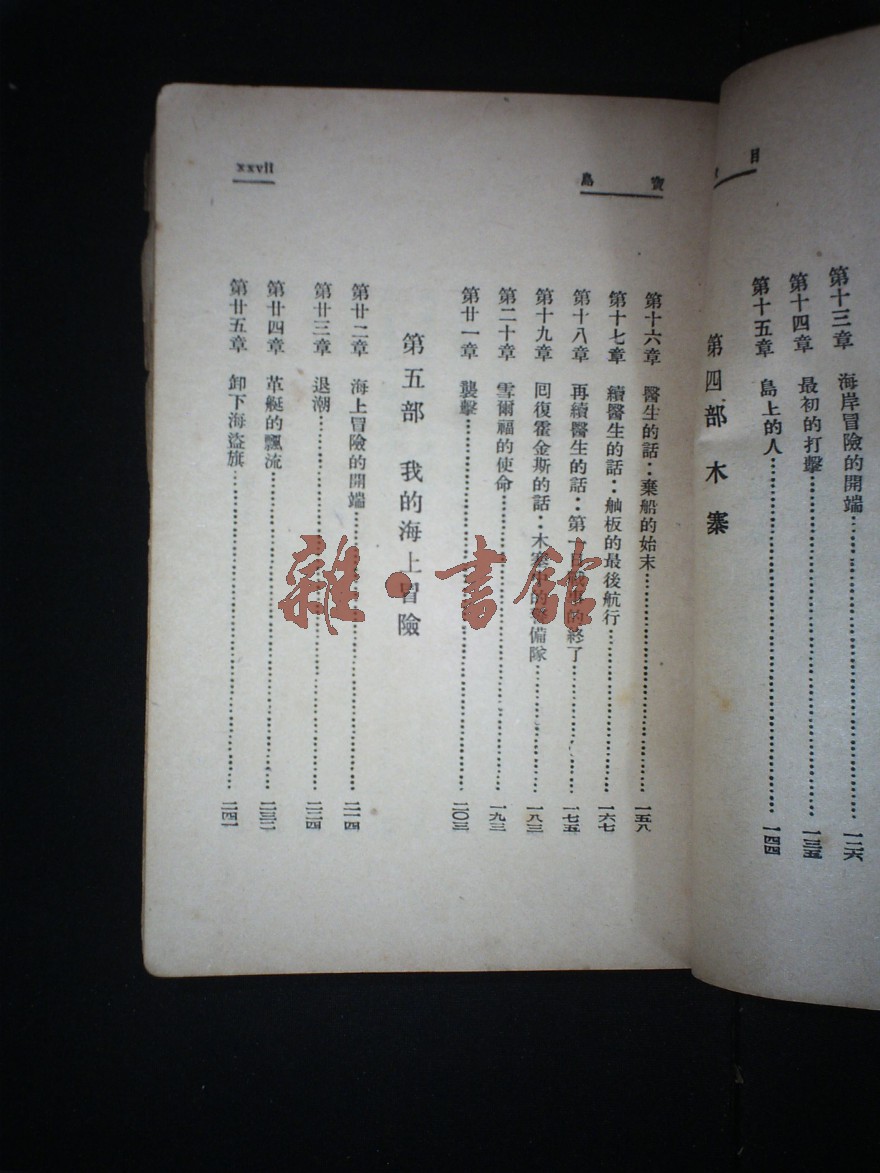 目
第十三章 海岸冒險的開端……一二六
第十四章 最初的打擊……一三五
第十五章 島上的人……一四四
第四部 木寨
寶島
第十六章 醫生的話：棄船的始末……一五八
第十七章 續醫生的話：舢板的最後航行……一六七
第十八章 再續醫生的話：第一 的終了……一七五
第十九章 回復霍金斯的話：木寨 的 備隊……一八三
第二十章 雪爾福的使命……一九三
第廿一章 襲擊……二〇三
第五部 我的海上冒險
第廿二章 海上冒險的開端……二一四
第廿三章 退潮……二二四
第廿四章 革艇的飄流……二三二
第廿五章 卸下海盜旗……二四一
xxvii
雜·書館